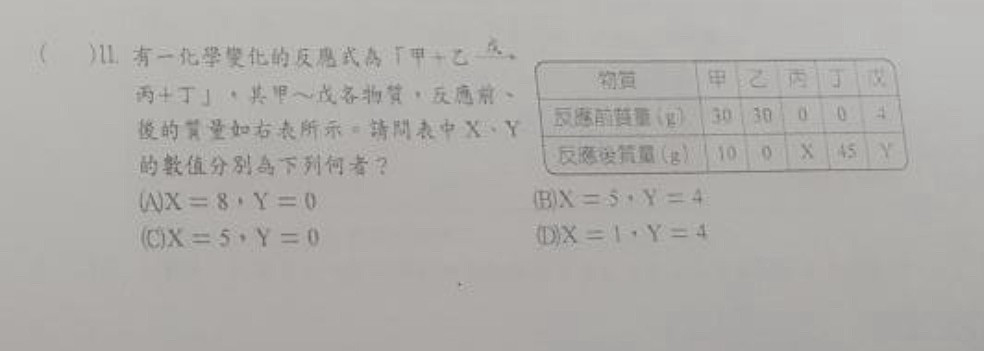 ( )11. 有一化學變化的反應式為「甲+乙 戊→
丙+丁」,其甲～戊各物質,反應前、
後的質量如右表所示。請問表中 X、Y
的數值分別為下列何者?
物質 甲 乙 丙 丁 戊
反應前質量(g) 30 30 0 0 4
反應後質量(g) 10 0 X 45 Y
(A)X=8,Y=0 (B)X=5,Y=4
(C)X=5,Y=0 (D)X=1,Y=4